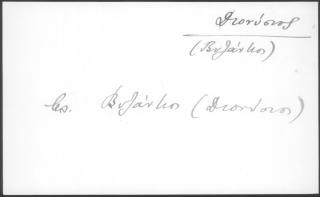 Διονύσιος
(Βυζάντιος)
βλ. Βυζάντιος (Διονύσιος)